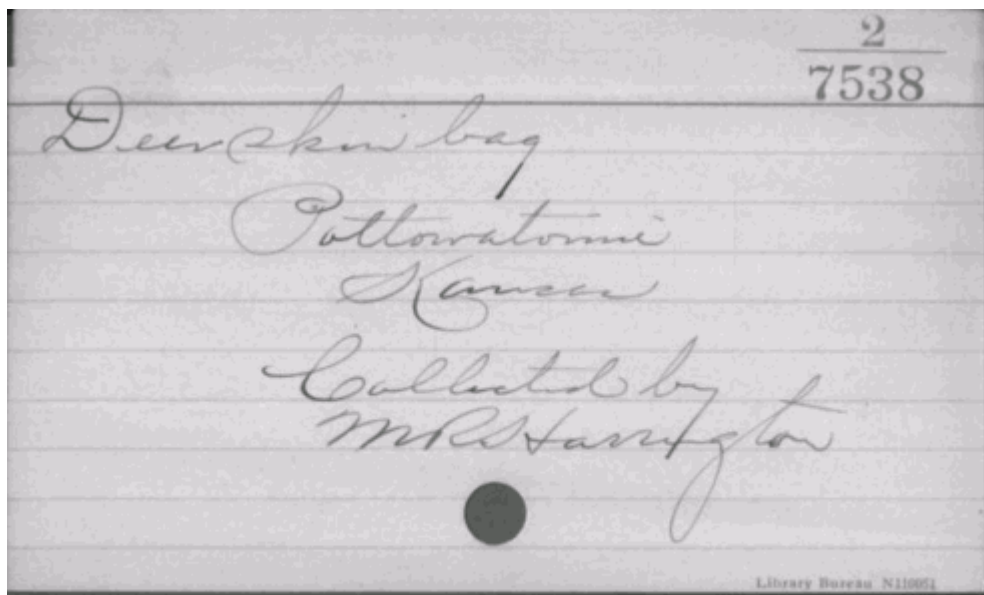 2
7538
Deer skin bag
Pottowatomie
Kansas
Collected by
MR Harrington
Library Bureau N119051